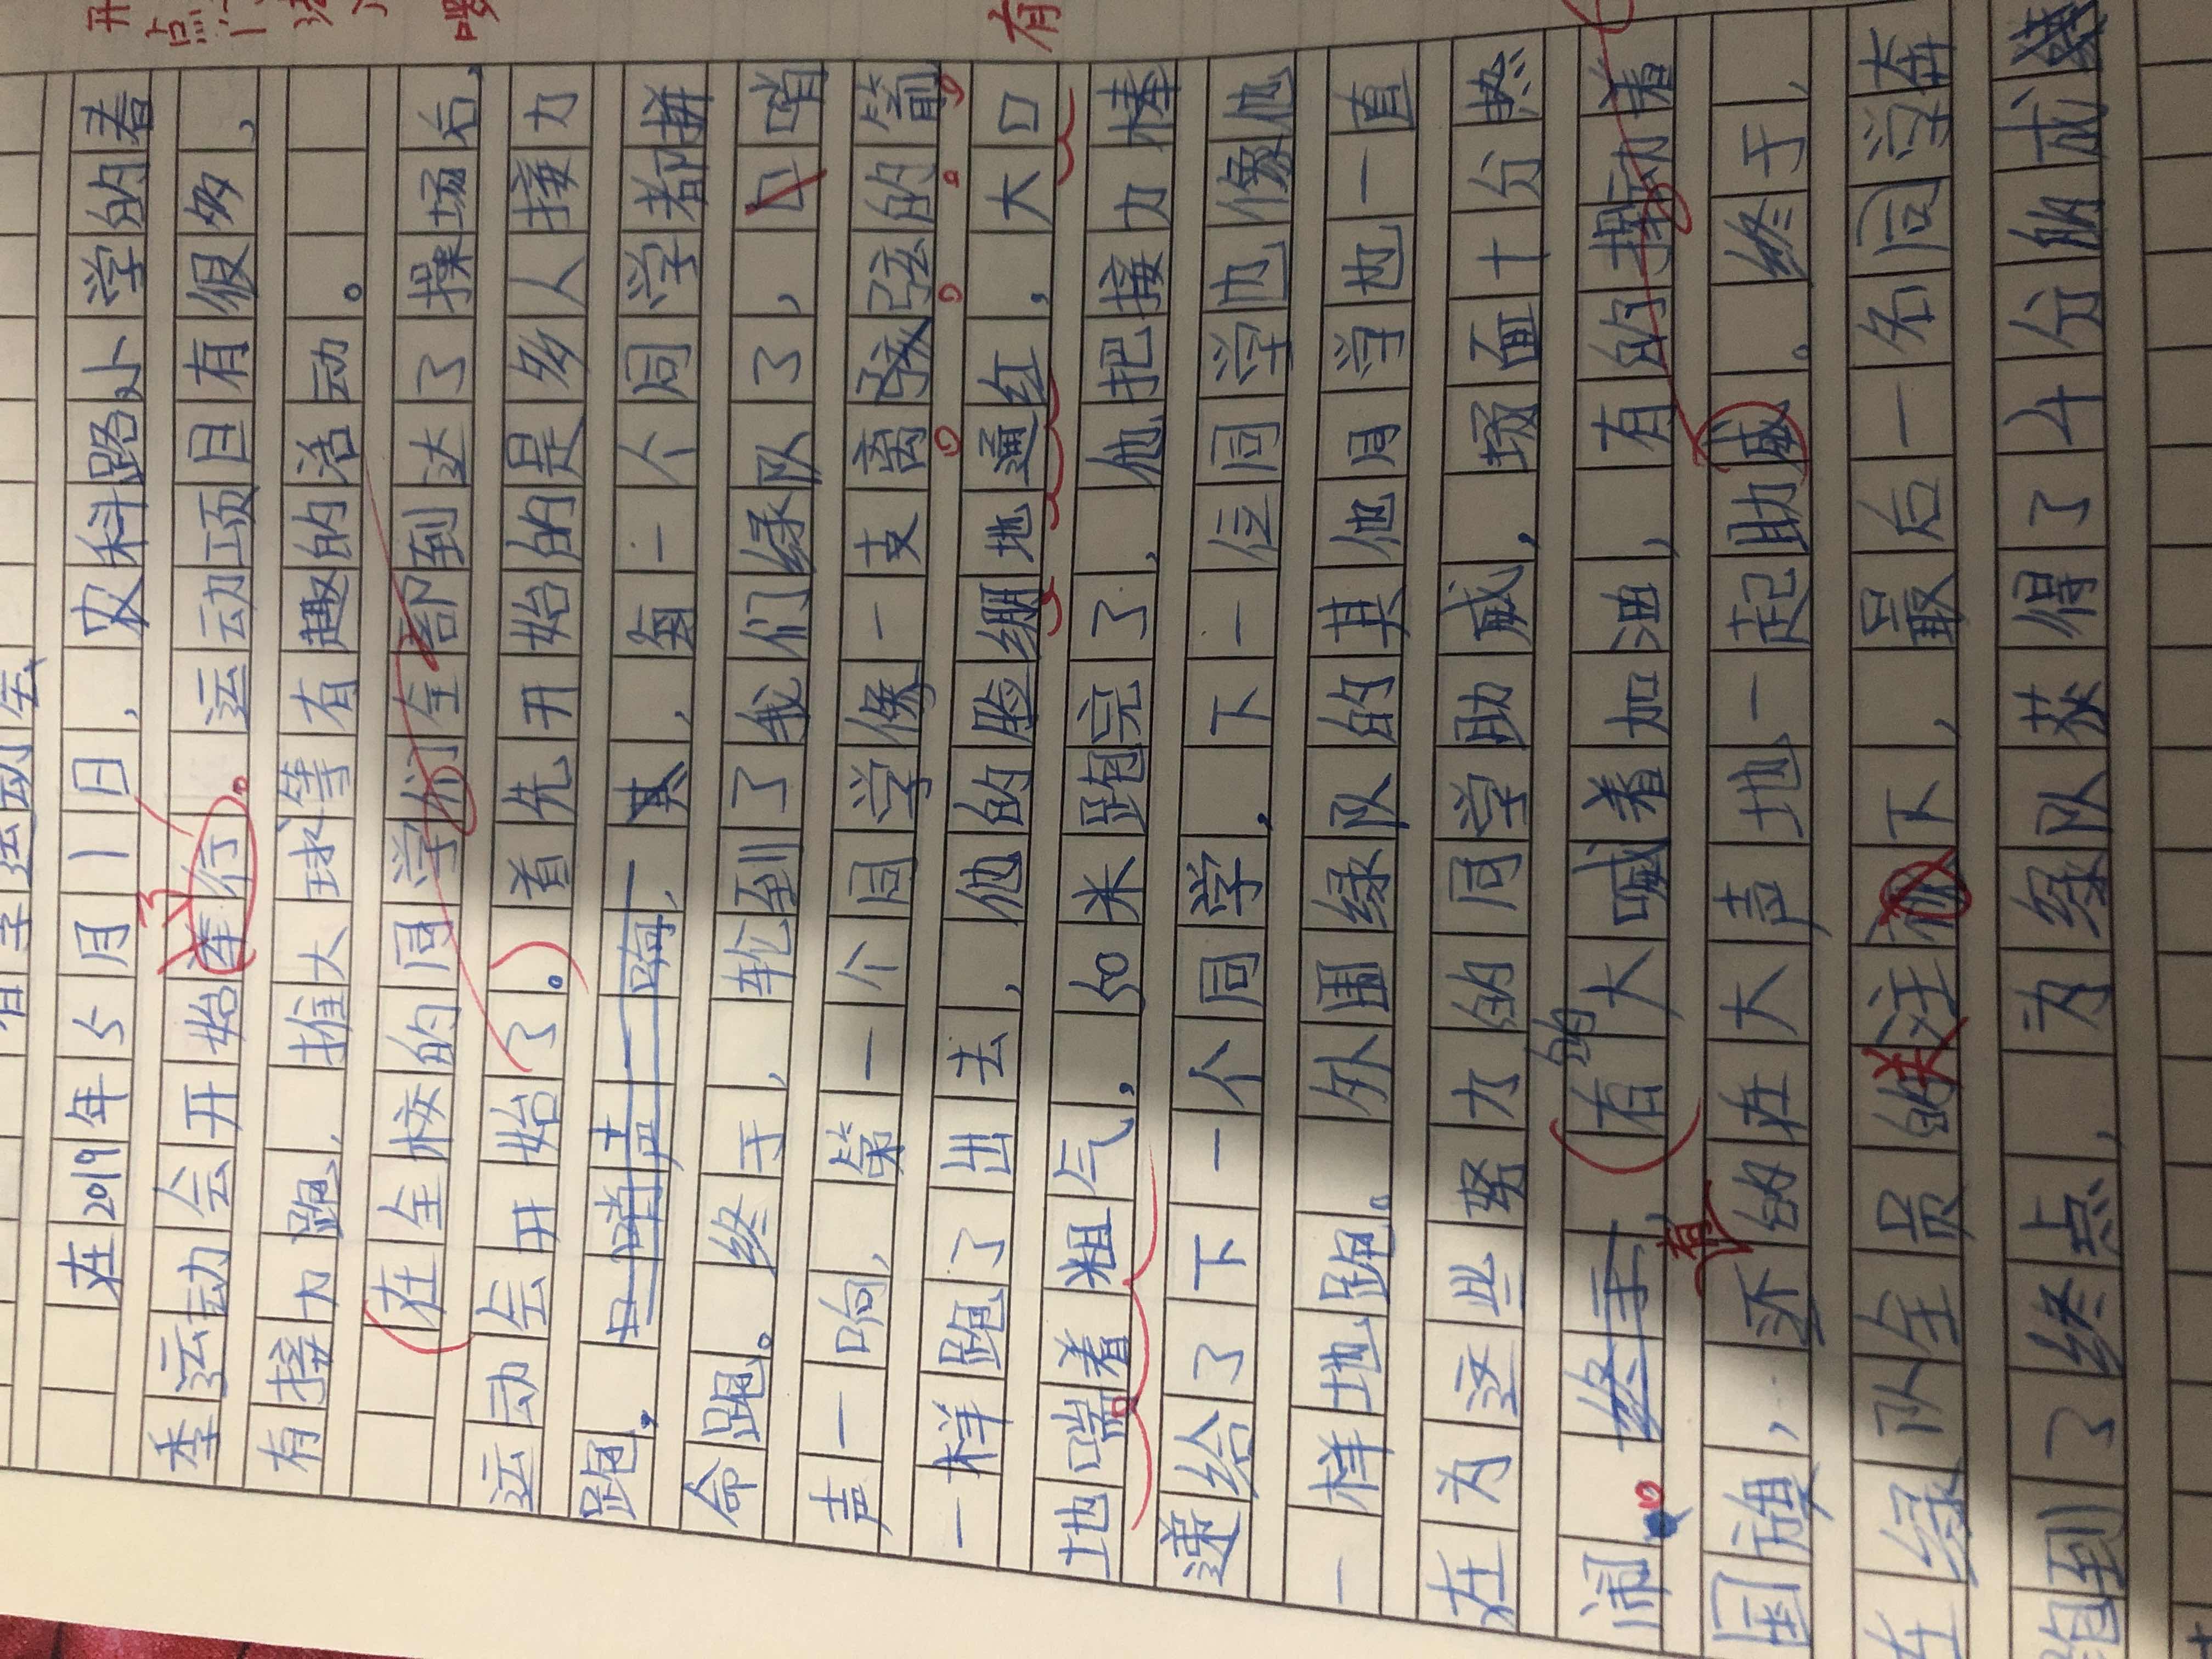 春季运动会
在2019年5月1日，农科路小学的春
季运动会开始举行。运动项目有很多，
有接力跑、推大球等有趣的活动。
在全校的同学们全部到达了操场后，
运动会开始了。首先开始的是多人接力
跑，每一个同学都拼
命跑。终于，轮到了我们绿队了，口哨
声一响，第一个同学像一支离弦的箭
一样跑了出去，他的脸绷地通红，大口
地喘着粗气，50米跑完了，他把接力棒
递给了下一个同学，下一位同学也像他
一样地跑。外围绿队的其他同学也一直
在为这些努力的同学助威，场面十分热
闹。有的大喊着加油，有的摇动着
国旗，还有的在大声地一起助威。终于，
在绿队全员的关注下，最后一名同学奔
跑到了终点，为绿队获得了4分的成